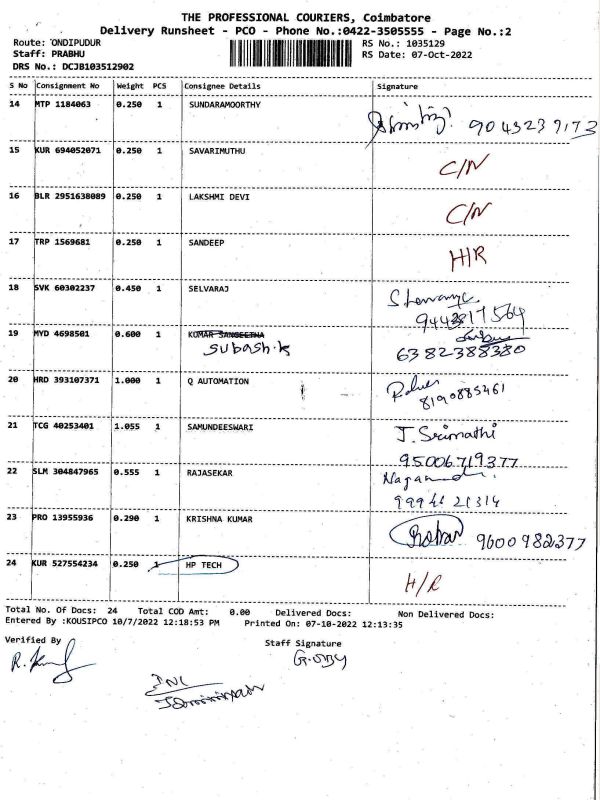 THE PROFESSIONAL COURIERS, Coimbatore
Delivery Runsheet - PCO - Phone No.:0422-3505555 - Page No.:2
Route: ONDIPUDUR RS No.: 1035129
Staff: PRABHU RS Date: 07-Oct-2022
DRS No.: DCJB103512902
S No Consignment No Weight PCS Consignee Details Signature
14 MTP 1184063 0.250 1 SUNDARAMOORTHY
9043239173
15 KUR 694052071 0.250 1 SAVARIMUTHU
C/N
16 BLR 2951638089 0.250 1 LAKSHMI DEVI
C/N
17 TRP 1569681 0.250 1 SANDEEP
H/R
18 SVK 60302237 0.450 1 SELVARAJ
9443817564
19 MYD 4698501 0.600 1 KUMAR SANGEETHA
Subash.k 6382388380
20 HRD 393107371 1.000 1 Q AUTOMATION
8190885461
21 TCG 40253401 1.055 1 SAMUNDEESWARI
J. Srimathi
9500671937​7
22 SLM 304847965 0.555 1 RAJASEKAR
23 PRO 13955936 0.290 1 KRISHNA KUMAR
9600982377
24 KUR 527554234 0.250 1 HP TECH
H/R
Total No. Of Docs: 24 Total COD Amt: 0.00 Delivered Docs: Non Delivered Docs:
Entered By :KOUSIPCO 10/7/2022 12:18:53 PM Printed On: 07-10-2022 12:13:35
Verified By Staff Signature